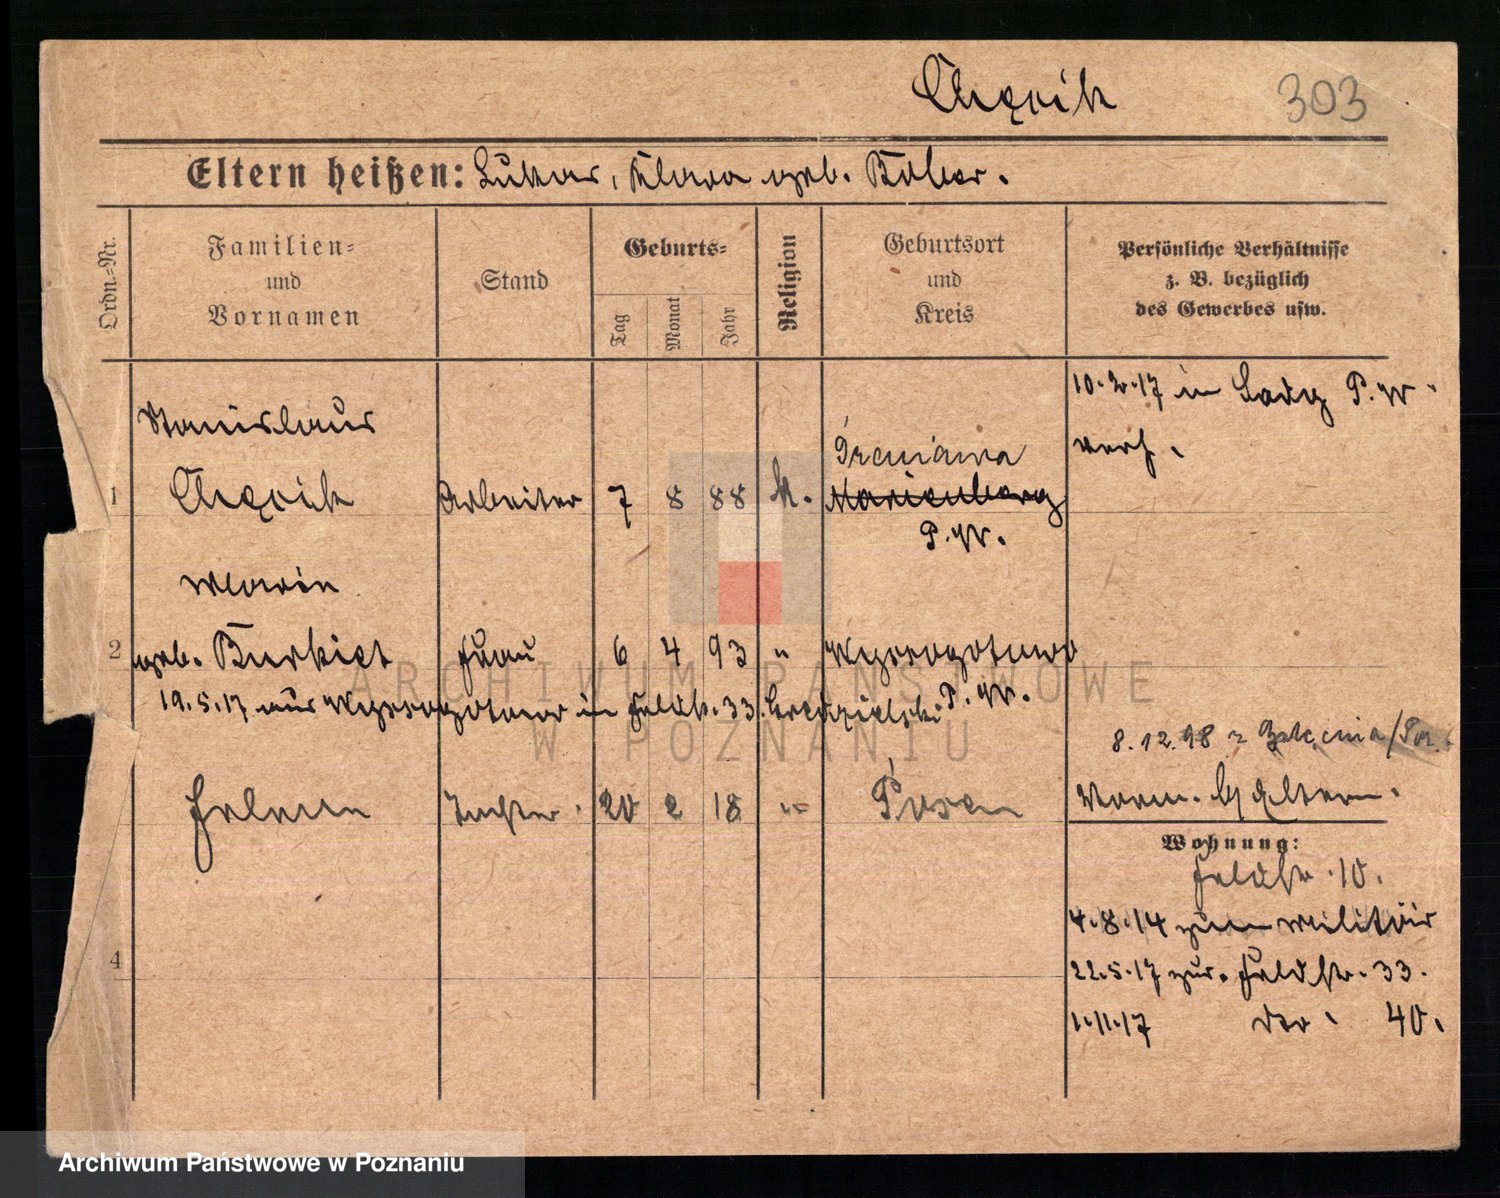 303
Eltern heißen: Lukas, Klara geb. Kober.
Ordn.=Nr.
Familien=
und
Vornamen
Stand
Geburts=
Tag
Monat
Jahr
Religion
Geburtsort
und
Kreis
Persönliche Verhältnisse
z. B. bezüglich
des Gewerbes usw.
10.2.17 in P. W.
verh.
Stanislaus
1 Arbeiter 7 8 88 k.
Marienberg
P. W.
Maria
2 geb. Frau 6 4 93 " Wyssogotowo
P. W.
19.5.17 aus Wyssogotowo in Feldstr. 33.
8.12.98
Helene Tochter 20 2 18 " Posen
Vorm. Eltern.
Wohnung:
Feldstr. 10.
4.8.14 zum Militär
4
22.5.17 zur. Feldstr. 33.
1.11.17 40.
ARCHIWUM PAŃSTWOWE
W POZNANIU
Archiwum Państwowe w Poznaniu